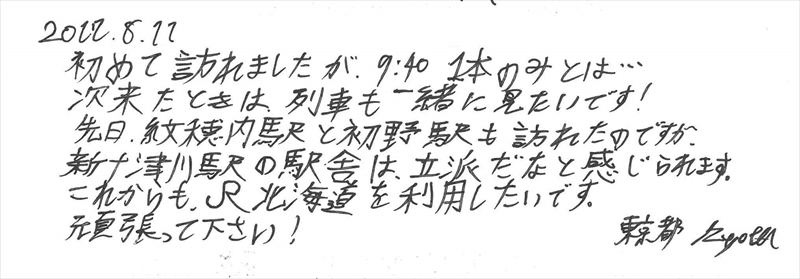 2017.8.11
初めて訪れましたが、9:40 1本のみとは…
次来たときは、列車も一緒に見たいです!
先日、紋穂内駅と初野駅も訪れたのですが、
新十津川駅の駅舎は、立派だなと感じられます。
これからも、JR北海道を利用したいです。
頑張って下さい!
東京都